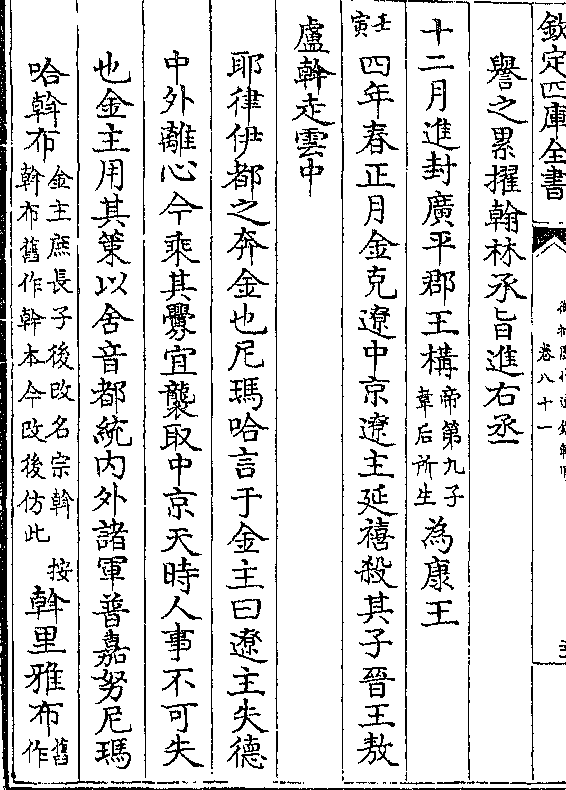 欽定四庫全書
卷八十一
譽之累擢翰林承旨進右丞
十二月進封廣平郡王構帝第九子韋后所生為康王
壬寅四年春正月金克遼中京遼主延禧殺其子晉王敖
盧斡走雲中
耶律伊都之奔金也尼瑪哈言于金主曰遼主失德
中外離心今乘其釁宜襲取中京天時人事不可失
也金主用其策以舍音都統內外諸軍普嘉努尼瑪
哈斡布金主庶長子後改名宗幹斡布舊作斡本今改後仿此按斡里雅布舊作